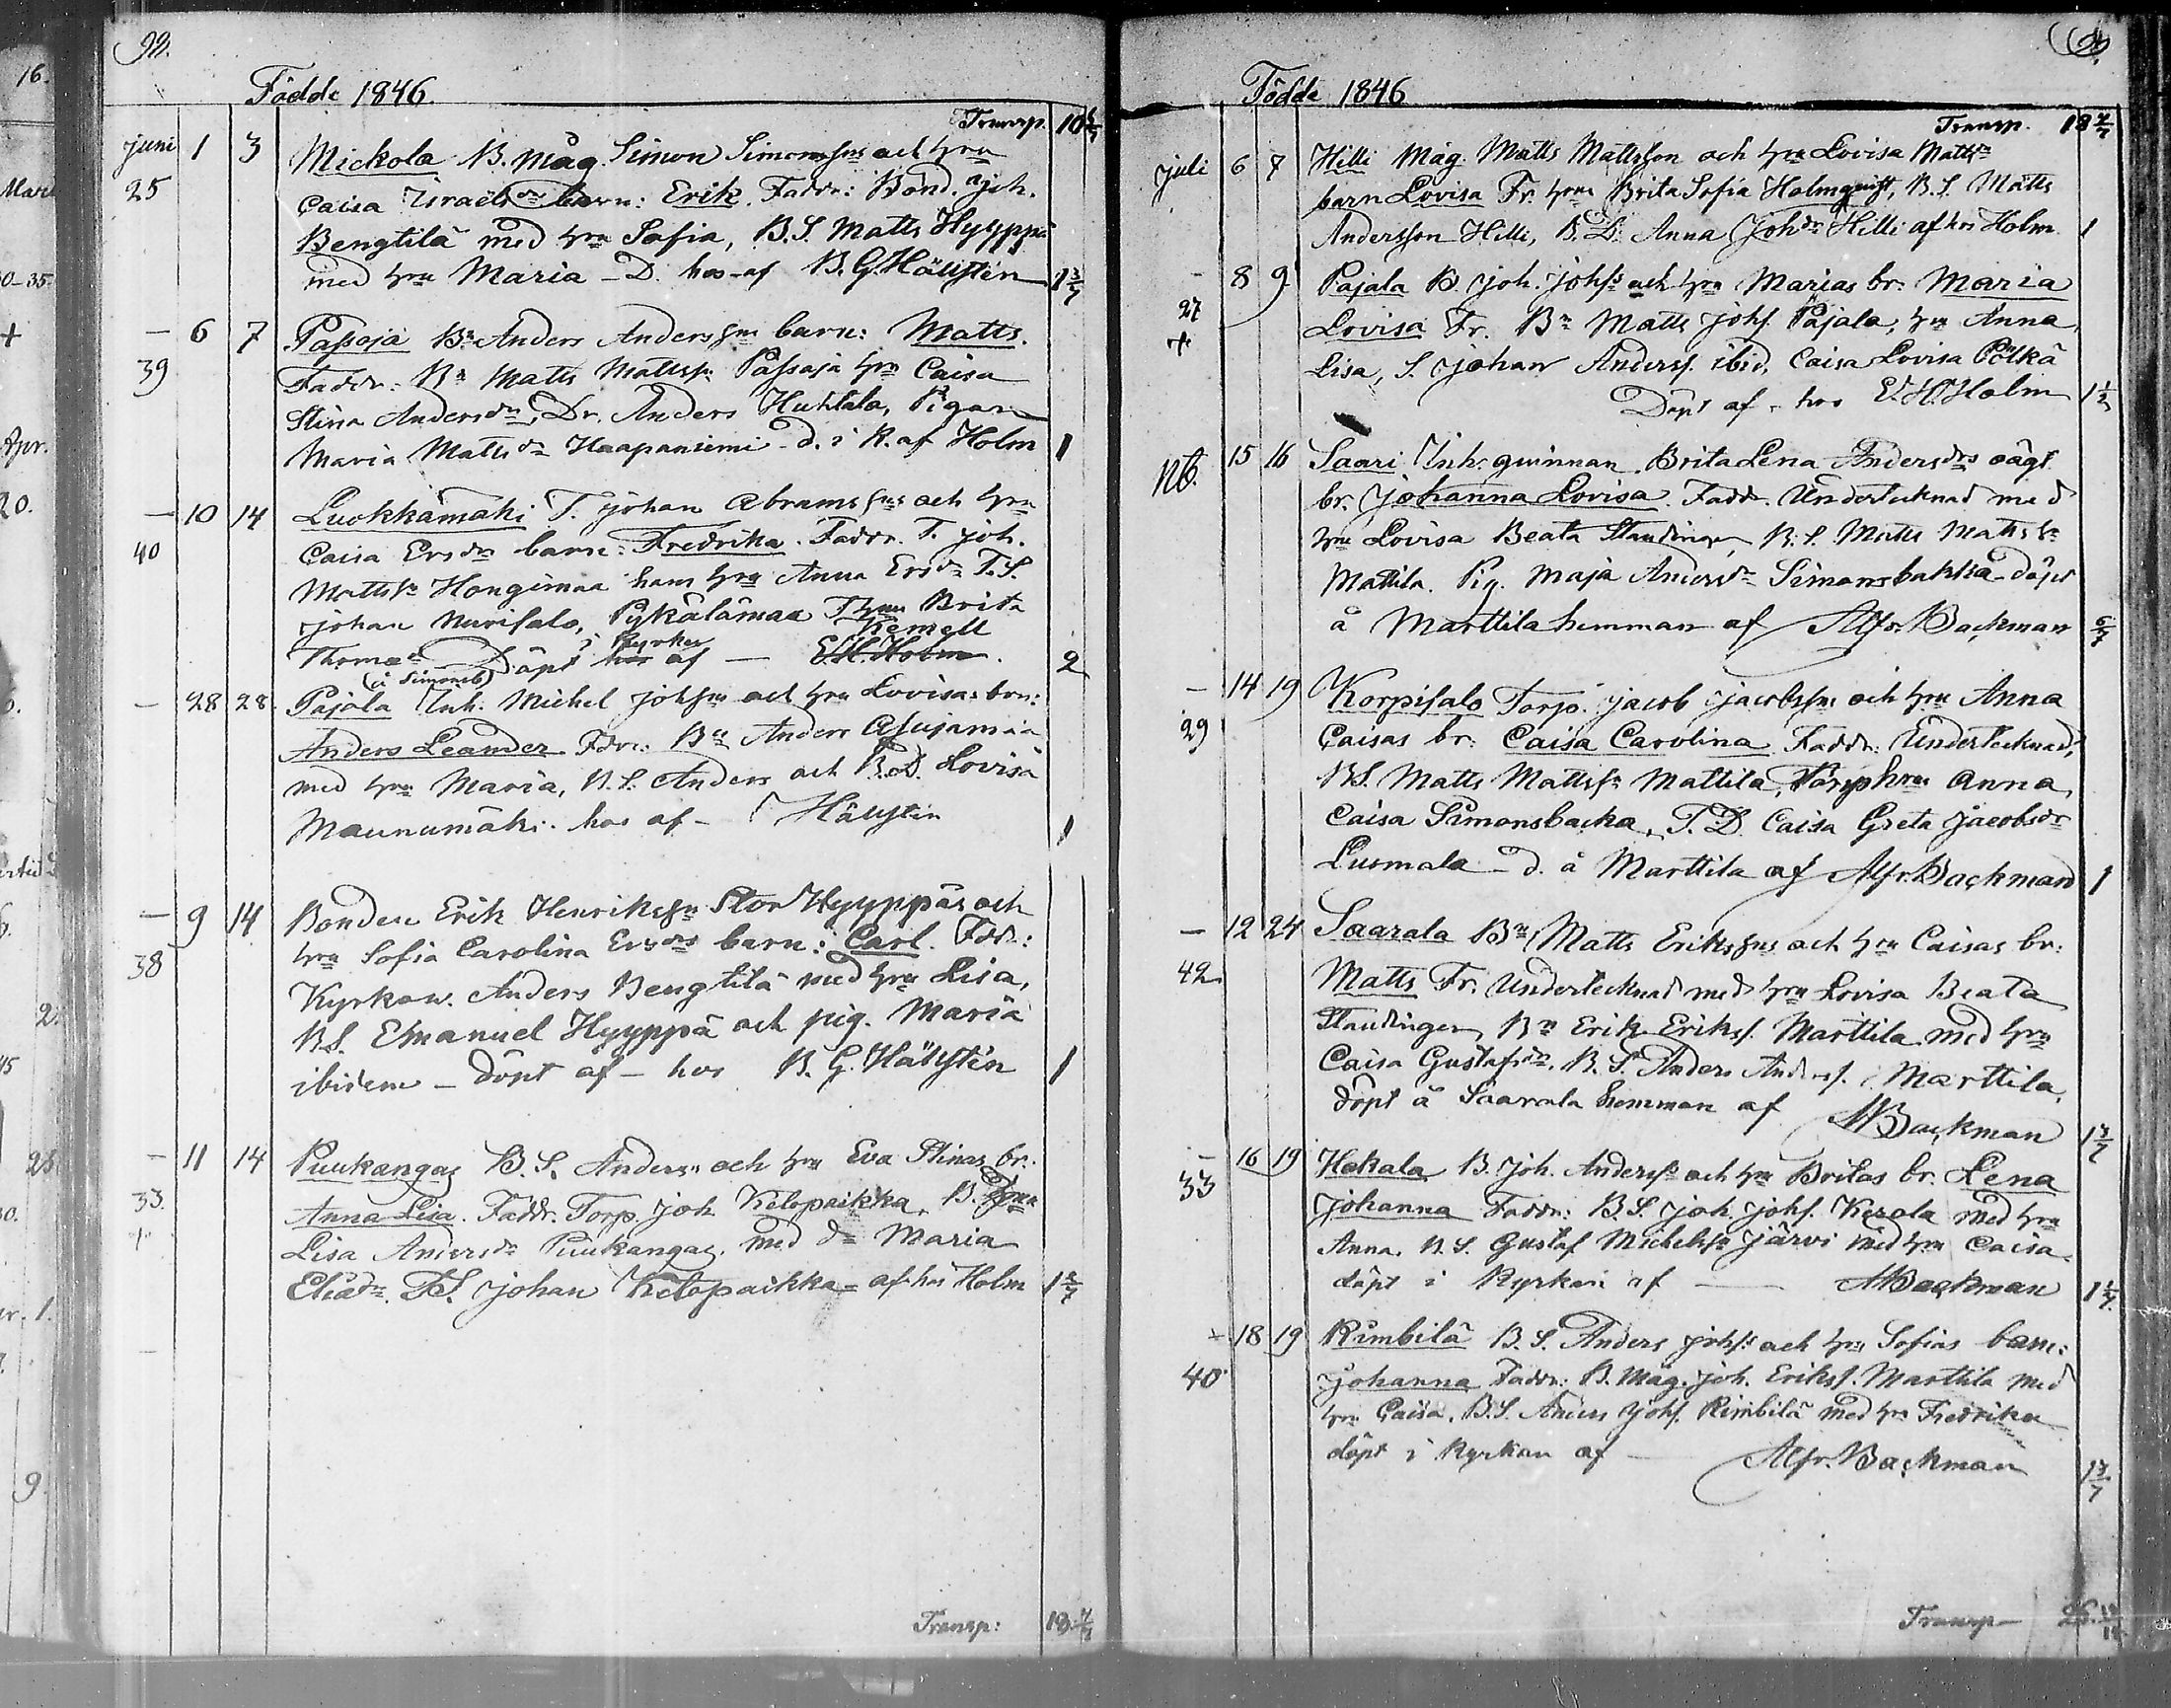 92.
Födde 1846.
Transp. 10
juni 1 3 Mickola B. Måg Simon Simonssns och hru
25 Caisa Israelsdrs barn: Erik. Faddr: Bond. Joh.
Bengtilä med hru Sofia, B.S. Matts Hyyppä
med hru Maria – D. hos af B. G. Hällsten 1 3/7
– 6 7 Passoja Bn Anders Anderssns barn: Matts.
39 Faddr: Bn Matts Mattssn Passoja hru Caisa
Stina Andersdr, Dr. Anders Huhtala, Pigan
Maria Mattsdr Haapaniemi – d. i K. af Holm 1
– 10 14 Luokkamäki T. Johan Abramssns och hru
40 Caisa Ersdrs barn: Fredrika. Faddr. T. Joh.
Mattssn Hongimaa hans hru Anna Ersdr T.S.
Johan Nurisalo, Pykälämaa Thru Brita
Thomasdr – Döpt i Kyrkan hos af – Hemell E.H. Holm. 2
(å Simonsb)
– 28 28. Pajala Inh. Michel Johssns och hru Lovisas barn:
Anders Leander Fddr: Bn Anders
med hru Maria, B.S. Anders och B.D. Lovisa
Maunumäki. hos af – Hällsten 1
– 9 14 Bonden Erik Henrikssn Stor Hyyppäs och
38 hru Sofia Carolina Ersdrs barn: Carl. Fddr:
Kyrkow. Anders Bengtilä med hru Lisa,
B.S. Emanuel Hyyppä och pig. Maria
ibidem – döpt af – hos B. G. Hällsten 1
– 11 14 Puukangas B.S. Anders och hru Eva Stinas br.
33. Anna Lisa. Faddr. Torp. Joh Kelopaikka, B. hru
+ Lisa Andersdr Puukangas, med dr Maria
Eliadr. T.S. Johan Kelopaikka – af hos Holm 1 3/7
Transp: 18 4/7
Födde 1846
Transp. 18 4/7
juli 6 7 Hilli Måg. Matts Mattsson och hru Lovisa Mattsdr
barn Lovisa Fr. hru Brita Sofia Holmqvist, B.S. Matts
Andersson Hilli, B.D. Anna Johdr Hilli af hos Holm 1
– 8 9 Pajala B. Joh. Johss och hru Marias br. Maria
27 Lovisa Fr. Bn Matts Johs. Pajala, hru Anna
+ Lisa, S. Johan Anderss. ibid, Caisa Lovisa Pölkä
Döpt af – hos E.H. Holm 1 1/2
NB. 15 16 Saari Inh. quinnan Brita Lena Andersdrs oägt
br. Johanna Lovisa. Faddr. Undertecknad med
hru Lovisa Beata Staudinger, B.S. Matts Mattssn
Mattila. Pig. Maja Andersdr Simonsbakka – döpt
å Marttila hemman af Alfr. Backman 6/7
– 14 19 Korpisalo Torp. Jacob Jacobssns och hru Anna
29 Caisas br. Caisa Carolina Faddr: Undertecknad,
B.S. Matts Mattssn Mattila, Torphru Anna
Caisa Simonsbacka, T.D. Caisa Greta Jacobsdr
Luomala – d. å Marttila af Alfr. Backman 1
– 12 24 Saarala Bn Matts Erikssns och hru Caisas br:
42 Matts Fr. Undertecknad med hru Lovisa Beata
Staudinger, Bn Erik Erikss. Marttila med hru
Caisa Gustafsdr, B.S. Anders Anderss. Marttila,
döpt å Saarala hemman af ABackman 1 3/7
– 16 19 Hakala B. Joh. Anderss och hru Britas br. Lena
33 Johanna Faddr: B.S. Joh. Johs. Kerala med hru
Anna, B.S. Gustaf Michelssn Järvi med hru Caisa
döpt i Kyrkan af – ABackman
– 18 19 Rimbilä B.S. Anders Johss och hru Sofias barn:
40 Johanna Faddr: B. Måg. Joh. Erikss. Marttila med
hru Caisa, B.S. Anders Johs. Rimbilä med hru Fredrika
döpt i Kyrkan af – Alfr. Backman 1 3/7
Transp –